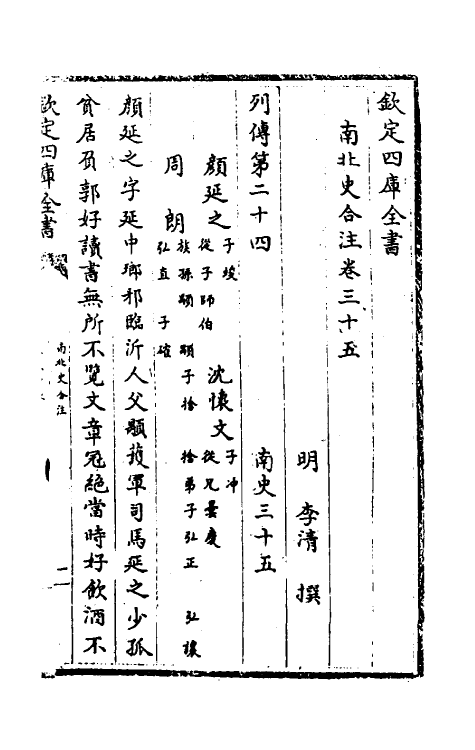 欽定四庫全書
南北史合注卷三十五
明 李清 撰
列傳第二十四 南史三十五
顔延之 子竣 從子師伯 沈懷文 子冲 從兄曇慶
周朗 族孫顒 顒子捨 捨弟子弘正 弘讓 弘直 子確
顔延之字延年瑯邪臨沂人父顒護軍司馬延之少孤
貧居負郭好讀書無所不覽文章冠絕當時好飲酒不
欽定四庫全書
南北史合注
一